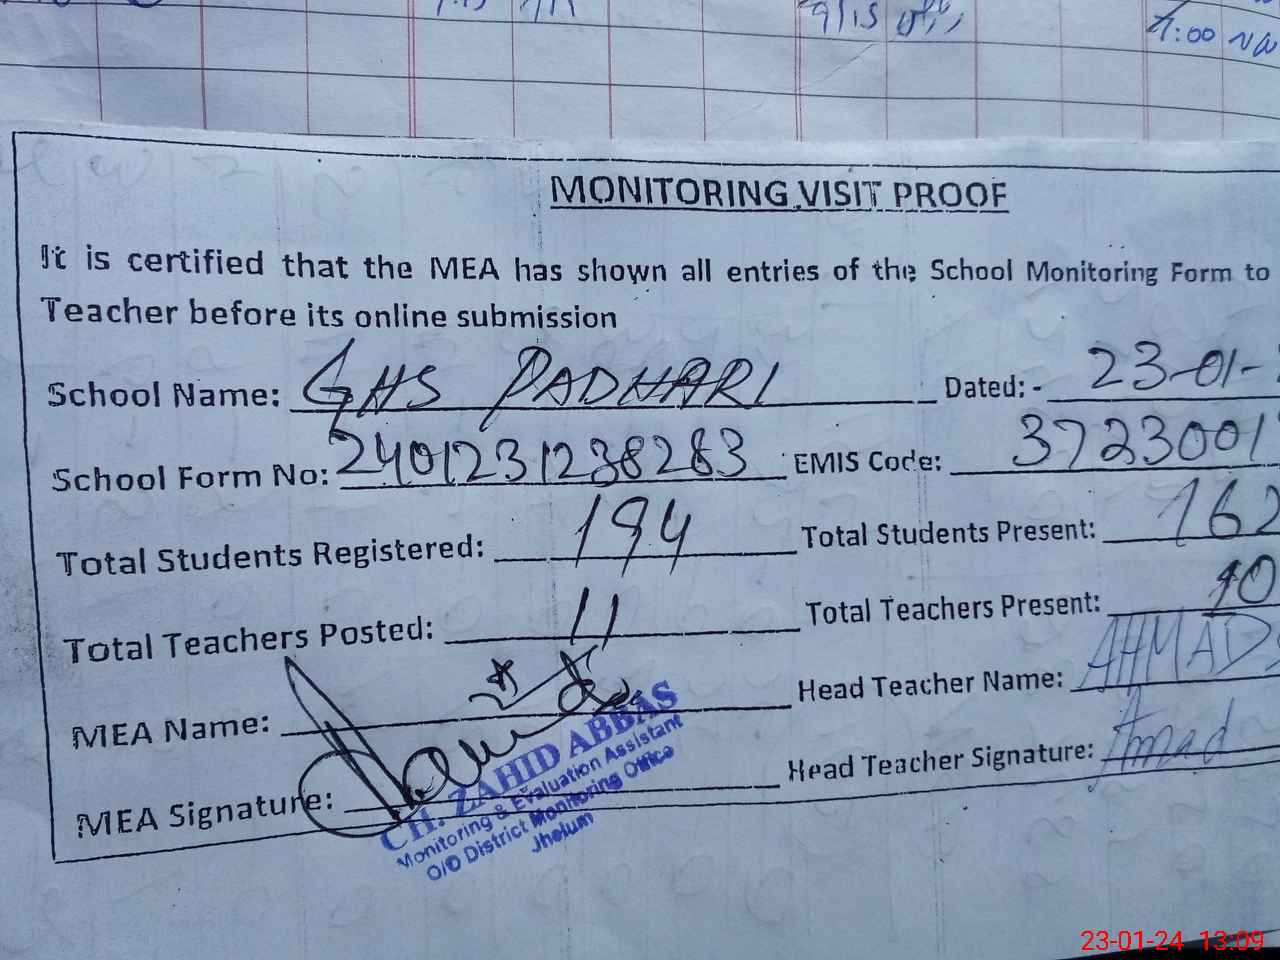 9/15
7:00
MONITORING VISIT PROOF
It is certified that the MEA has shown all entries of the School Monitoring Form to
Teacher before its online submission
School Name: GHS PADHARI Dated: - 23-01-
School Form No: 2401231238283 EMIS Code: 3723001
Total Students Registered: 194 Total Students Present: 162
Total Teachers Posted: 11 Total Teachers Present: 10
MEA Name: Head Teacher Name: AHMAD
MEA Signature: Head Teacher Signature: Ahmad
CH. ZAHID ABBAS
Monitoring & Evaluation Assistant
O/O District Monitoring Office
Jhelum
23-01-24 13:09